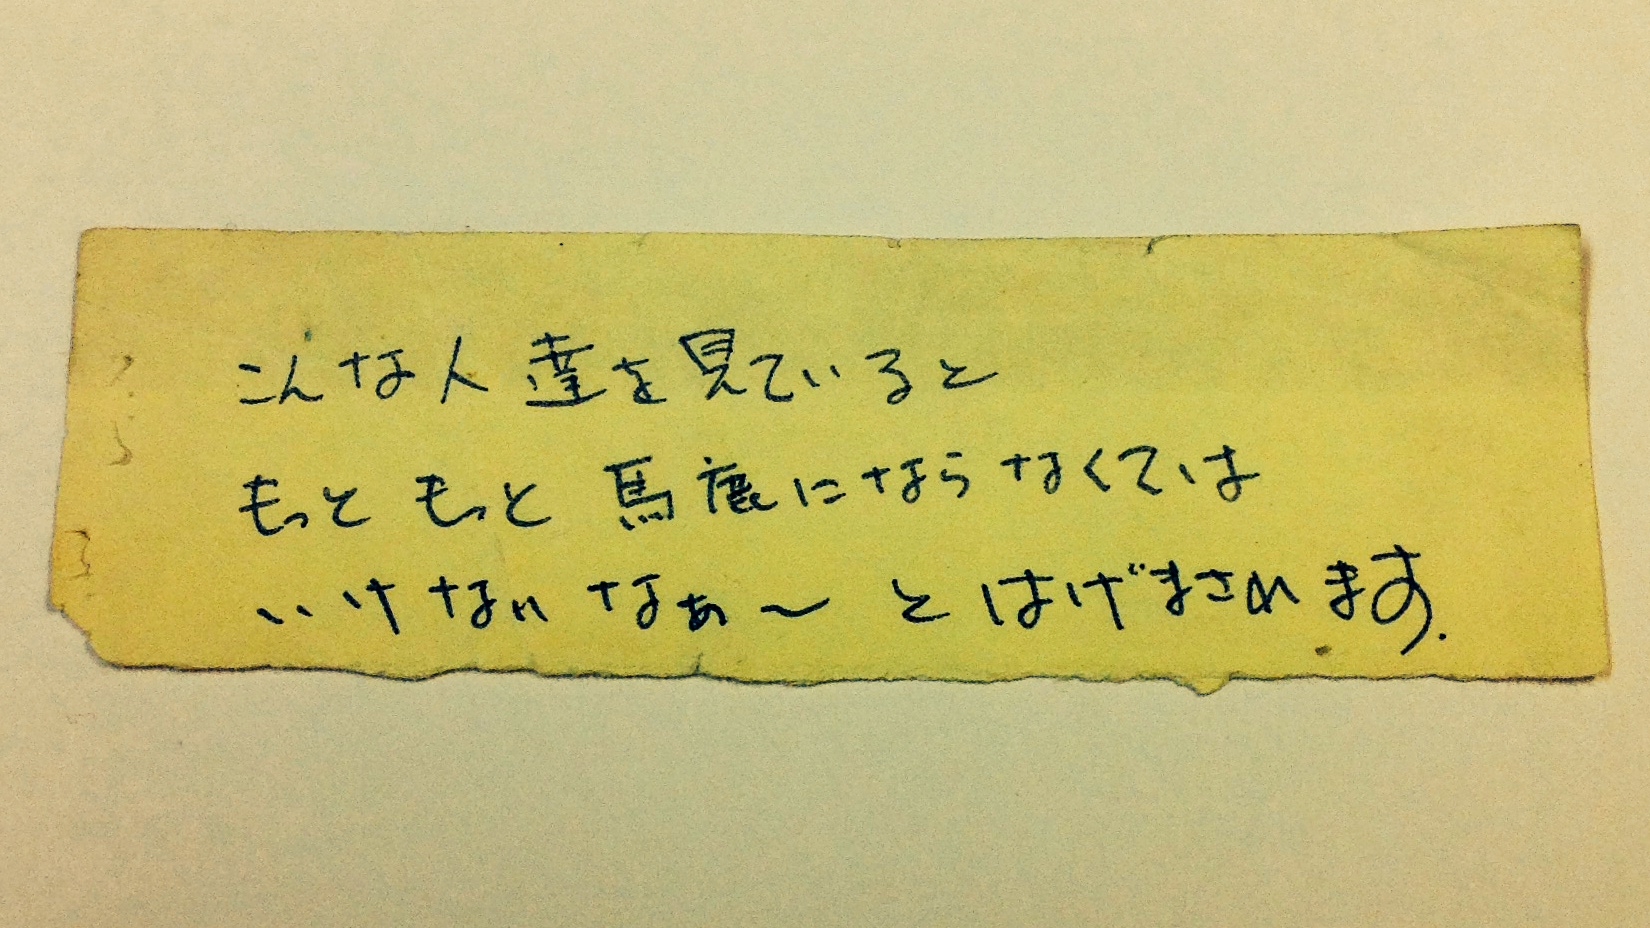 こんな人達を見ていると
もっともっと馬鹿にならなくては
いけないなぁ〜とはげまされます.